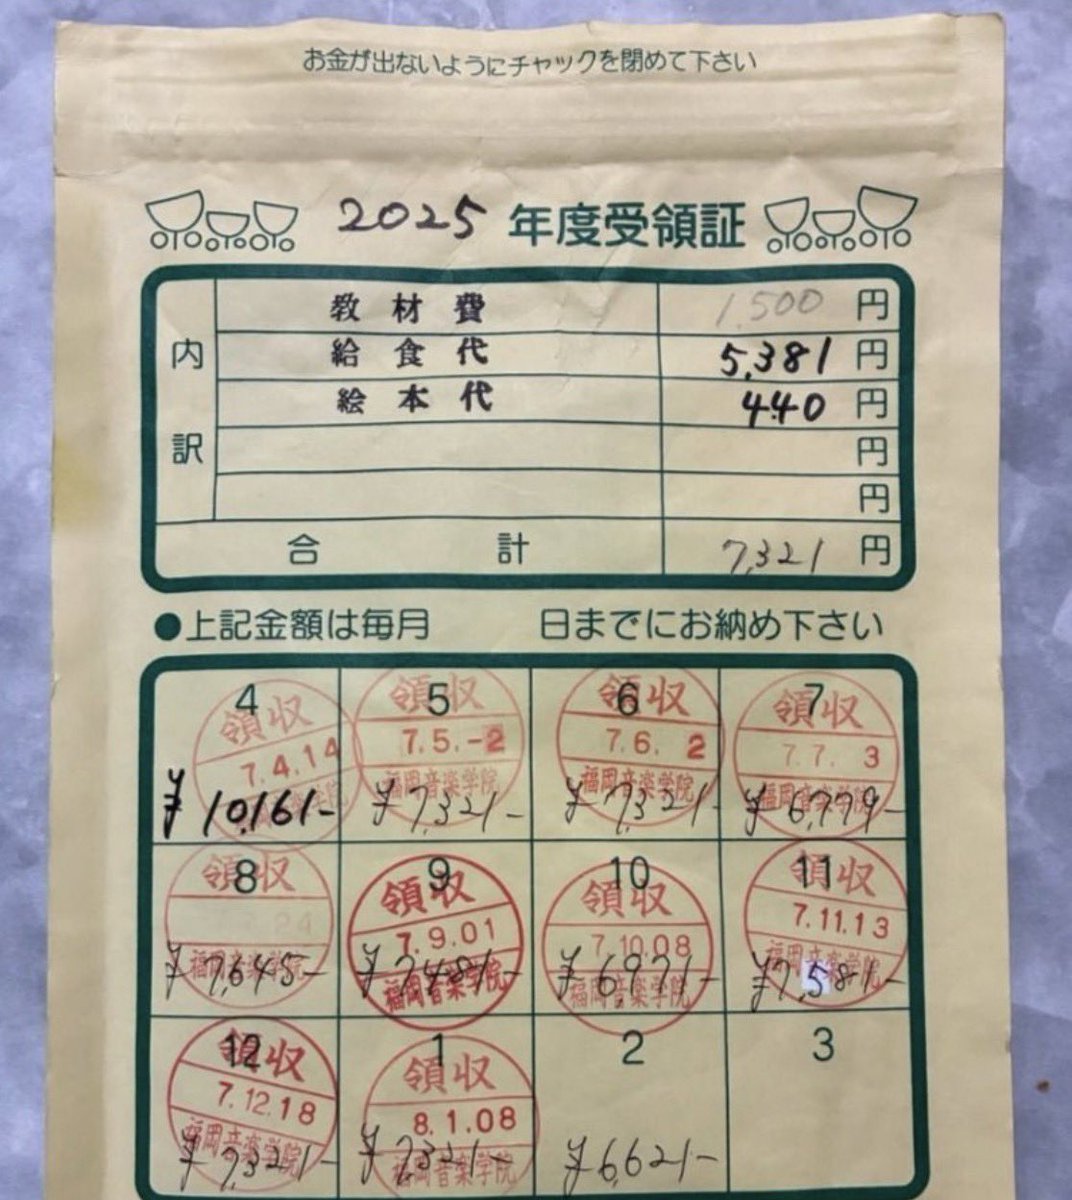 お金が出ないようにチャックを閉めて下さい
2025 年度受領証
内訳
教材費 1,500 円
給食代 5,381 円
絵本代 440 円
円
円
合計 7,321 円
●上記金額は毎月 日までにお納め下さい
4 領収 7.4.14 音楽学院 ¥10,161-
5 領収 7.5.-2 福岡音楽学院 ¥7,321-
6 領収 7.6.2 福岡音楽学院 ¥7,321-
7 領収 7.7.3 福岡音楽学院 ¥6,779-
8 領収 24 福岡音楽学院 ¥7,645-
9 領収 7.9.01 福岡音楽学院 ¥7,481-
10 領収 7.10.08 福岡音楽学院 ¥6,971-
11 領収 7.11.13 福岡音楽学院 ¥7,581-
12 領収 7.12.18 福岡音楽学院 ¥7,321-
1 領収 8.1.08 福岡音楽学院 ¥7,321-
2 ¥6,621-
3